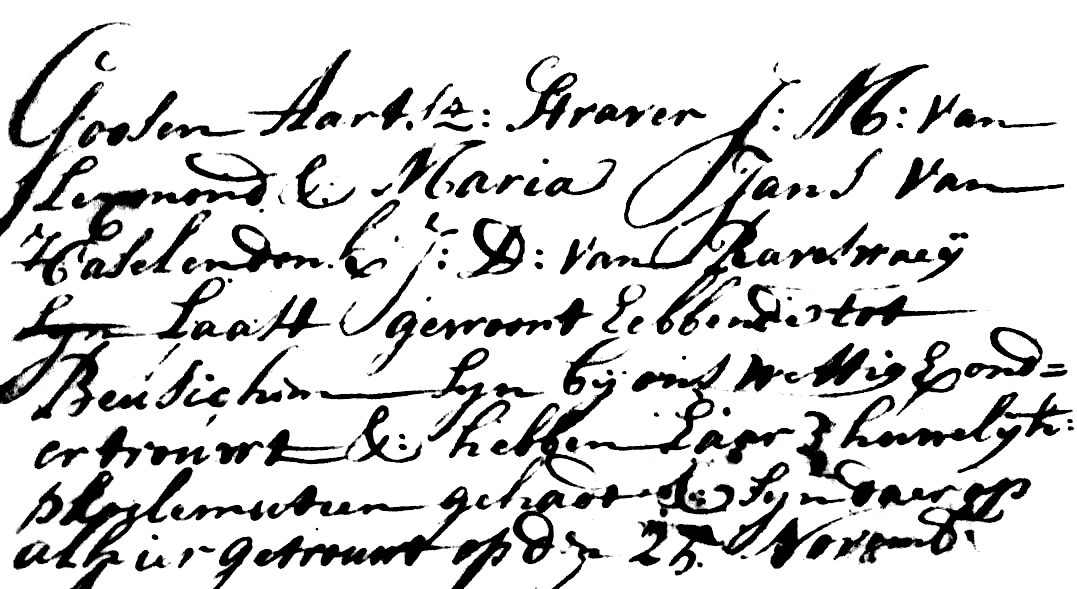 Goosen Aart.sz: Straver J: M: van
Lexmond &: Maria Jans van
Haselendonk J: D: van Raveswaeÿ
Lyn Laatst gewoont hebbende tot
Beusichem Syn bÿ ons wettig Hond=
ertrouwt &: hebben haar 3 huwelÿk:
proclamatien gehadt &: Syn daer op
alhier getrouwt op den 25. Novemb: